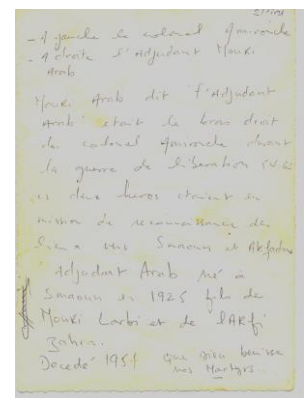 - A gauche le colonel Amirouche
- A droite l'Adjudant Mouri
Arab
Mouri Arab dit "l'Adjudant
Arab" était le bras droit
du colonel Amirouche durant
la guerre de libération
deux héros étaient en
mission de reconnaissance des
lieux vers Smaoun et Akfadou
Adjudant Arab né à
Smaoun en 1925 fils de
Mouri Larbi et de
Zahra.
Décédé que Dieu benisse
nos Martyrs.